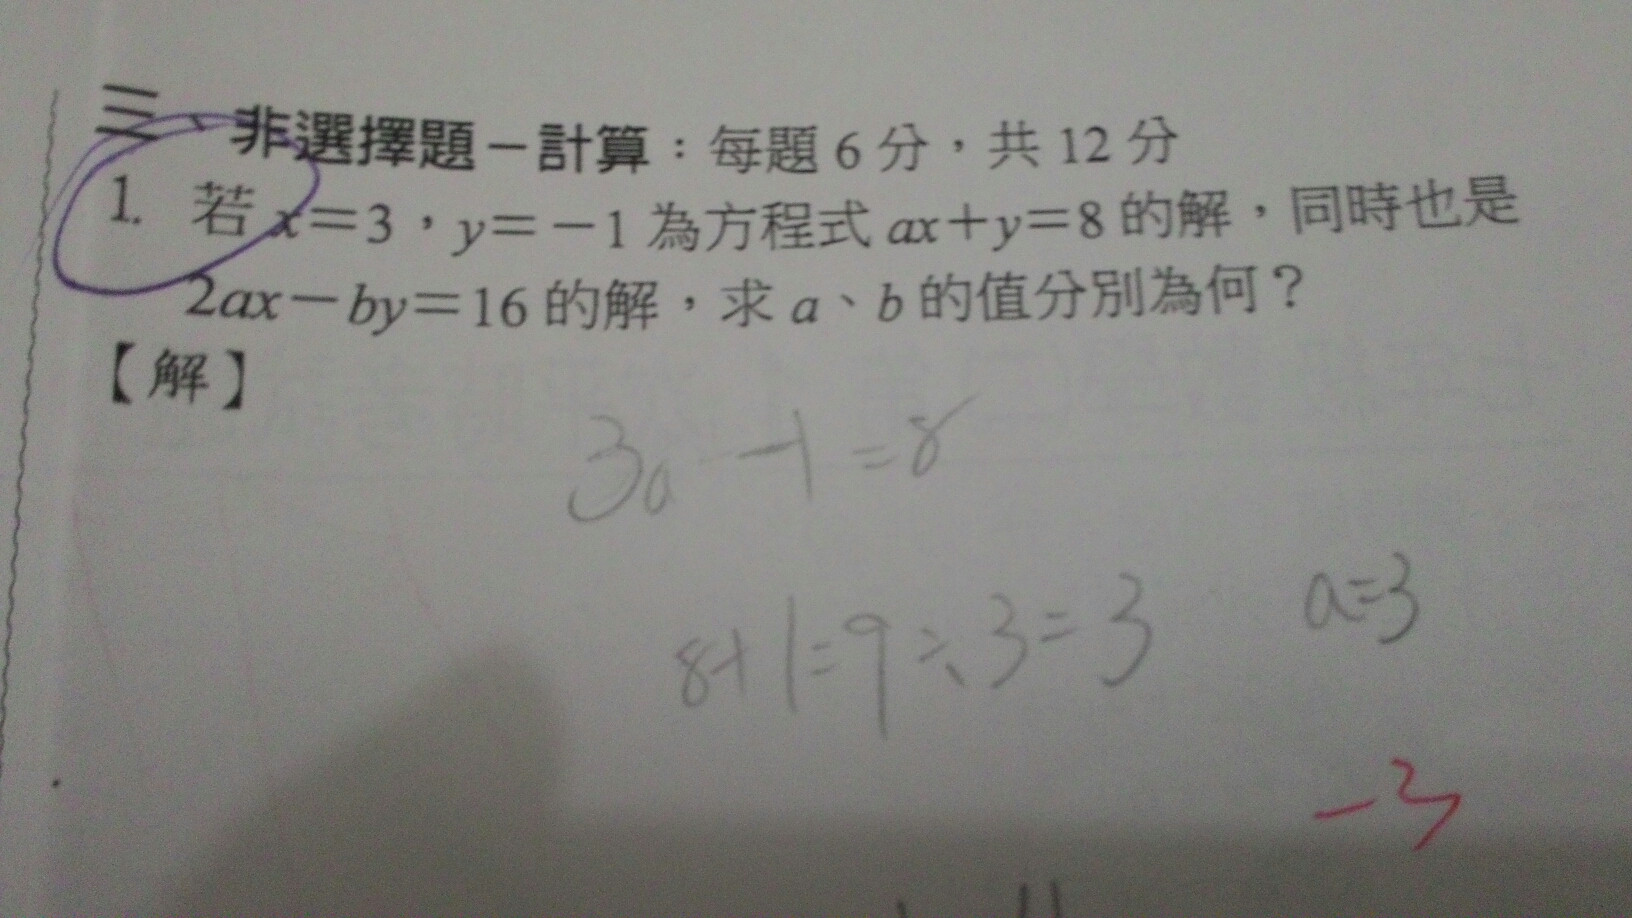 三、非選擇題－計算：每題 6 分，共 12 分
1. 若 x＝3，y＝－1 為方程式 ax＋y＝8 的解，同時也是
2ax－by＝16 的解，求 a、b 的值分別為何？
【解】
3a -1 =8
8+1=9÷3=3 a=3
-3